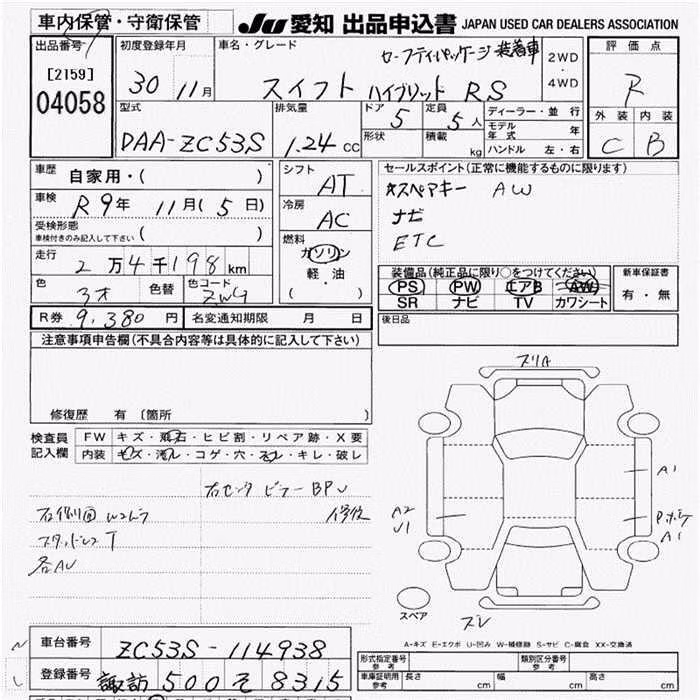 車内保管・守衛保管
JU 愛知 出品申込書 JAPAN USED CAR DEALERS ASSOCIATION
出品番号
[2159]
04058
初度登録年月
30 年 11月
車名・グレード
セーフティパッケージ装着車
スイフト ハイブリッド RS
2WD
・
4WD
評価点
R
外装 内装
C B
型式
DAA-ZC53S
排気量
1.24 CC
ドア
5
定員
5人
形状
積載
kg
ディーラー・並行
モデル年式 年
ハンドル 左・右
車歴
自家用・( )
車検
R9年 11月(5日)
受検形態
車検付きのみ記入して下さい ( )
走行
2万4千198km
色
3オ
色替
色コード
ZWG
シフト
AT
冷房
AC
燃料
ガソリン
軽・油
( ・ )
セールスポイント(正常に機能するものに限ります)
スペアキー AW
ナビ
ETC
装備品(純正品に限り○をつけてください)
PS PW エアB AW
SR ナビ TV カワシート
新車保証書
有・無
R券 9,380 円
名変通知期限 月 日
後日品
注意事項申告欄(不具合内容等は具体的に記入して下さい)
修復歴 有 〔箇所 〕
検査員
記入欄
FW キズ・飛石・ヒビ割・リペア跡・X要
内装 キズ・汚レ・コゲ・穴・スレ・キレ・破レ
右センタピラーBPU
修復
スタッドレスT
各AU
スリA
A1
A2
U1
A1
スペア
ズレ
A-キズ E-エクボ U-凹み W-補修跡 S-サビ C-腐食 XX-交換済
車台番号 ZC53S-114938
登録番号 諏訪 500 そ 8315
形式指定番号
参考
類別区分番号
参考
車庫証明用
参考
長さ cm
幅 cm
高さ cm